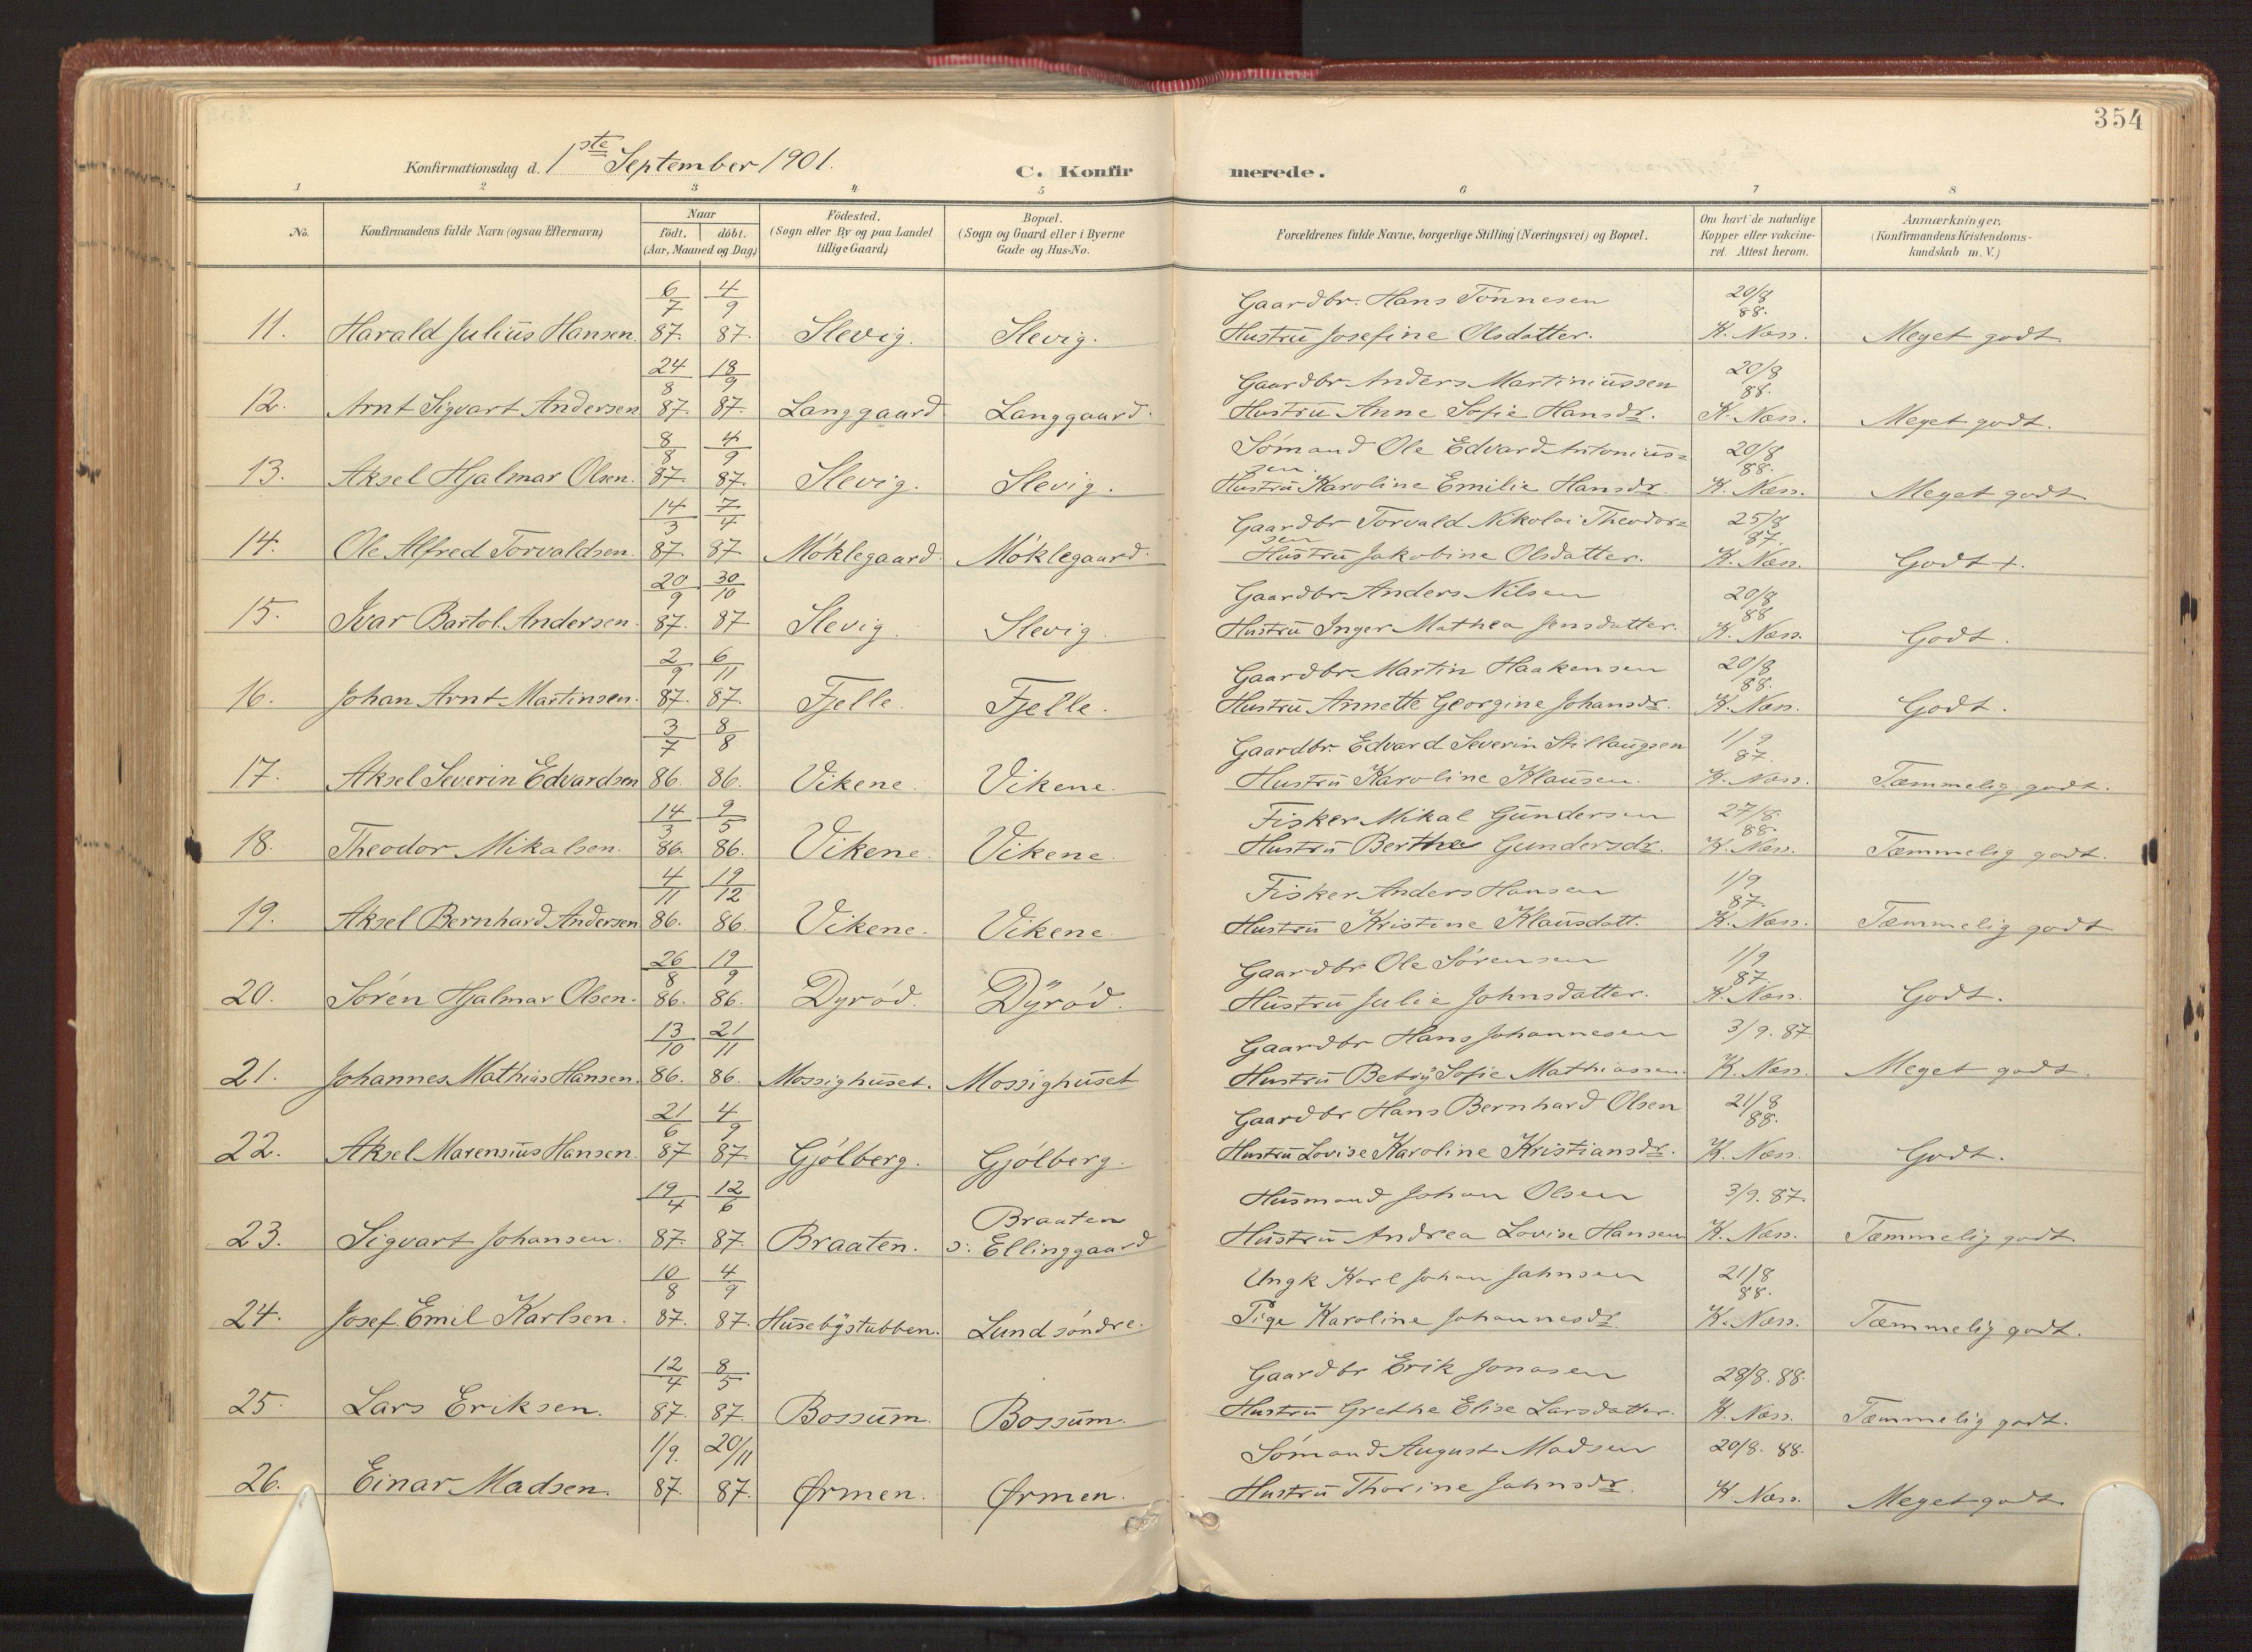 354
Konfirmationsdag d. 1ste September 1901.
C. Konfirmerede.
1 2 3 4 5 6 7 8
No. Konfirmandens fulde Navn (ogsaa Efternavn) Naar födt. döbt. (Aar, Maaned og Dag) Födested. (Sogn eller By og paa Landet tillige Gaard) Bopæl. (Sogn og Gaard eller i Byerne Gade og Hus-No. Forældrenes fulde Navne, borgerlige Stilling (Næringsvei) og Bopæl. Om havt de naturlige Kopper eller vakcineret Attest herom. Anmærkninger. (Konfirmandens Kristendomskundskab m. V.)
6/7 4/9 Gaardbr. Hans Tönnesen 20/8 88.
11. Harald Julius Hansen. 87. 87. Slevig. Slevig. Hustru Josefine Olsdatter. K. Næss. Meget godt
24/8 18/9 Gaardbr Anders Martiniussen 20/8 88.
12. Arnt Sigvart Andersen 87. 87. Langgaard Langgaard. Hustru Anne Sofie Hansdr. K. Næss. Meget godt.
8/8 4/9 Sömand Ole Edvard Antonius= 20/8 88.
sen
13. Aksel Hjalmar Olsen. 87. 87. Slevig. Slevig. Hustru Karoline Emilie Hansdr. K. Næss. Meget godt
14/3 7/4 Gaardbr Torvald Nikolai Theodor= 25/8 87.
sen
14. Ole Alfred Torvaldsen. 87. 87. Möklegaard. Möklegaard. Hustru Jakobine Olsdatter. K. Næss. Godt +.
20/9 30/10 Gaardbr Anders Nilsen 20/8 88
15. Ivar Bartol. Andersen. 87. 87 Slevig. Slevig. Hustru Inger Mathea Jensdatter. K. Næss. Godt.
2/9 6/11 Gaardbr Martin Haakensen 20/8 88.
16. Johan Arnt Martinsen. 87. 87. Fjelle. Fjelle. Hustru Annette Georgine Johansdr. K. Næss. Godt.
3/7 8/8 Gaardbr. Edvard Severin Stillaugsen 1/9 87.
17. Aksel Severin Edvardsen 86. 86. Vikene. Vikene. Hustru Karoline Klausen. K. Næss. Tæmmelig godt.
14/3 9/5 Fisker Mikal Gundersen 27/8. 88.
18. Theodor Mikalsen. 86. 86. Vikene. Vikene. Hustru Berthe Gundersdr. K. Næss. Tæmmelig godt.
4/11 19/12 Fisker Anders Hansen 1/9 87.
19. Aksel Bernhard Andersen 86. 86. Vikene. Vikene. Hustru Kristine Klausdatt. K. Næss. Tæmmelig godt
26/8 19/9 Gaardbr Ole Sörensen 1/9 87.
20. Sören Hjalmar Olsen. 86. 86. Dyröd. Dyröd. Hustru Julie Johnsdatter. K. Næss. Godt.
13/10 21/11 Gaardbr Hans Johannesen 3/9. 87.
21. Johannes Mathias Hansen. 86. 86. Mossighuset. Mossighuset Hustru Betsy Sofie Mathiassen. K. Næss. Meget godt.
21/6 4/9 Gaardbr Hans Bernhard Olsen 21/8 88.
22. Aksel Marensius Hansen. 87 87. Gjölberg. Gjölberg. Hustru Lovise Karoline Kristiansdr. K. Næss. Godt.
19/4 12/6 Braaten Husmand Johan Olsen 3/9. 87.
23. Sigvart Johansen. 87. 87. Braaten. s. Ellinggaard Hustru Andrea Lovise Hansen K. Næss. Tæmmelig godt
10/8 4/9 Ungk Karl Johan Jahnsen 21/8 88.
24. Josef Emil Karlsen. 87. 87. Husebystubben. Lund söndre. Pige Karoline Johannesdr. K. Næss. Tæmmelig godt.
12/4 8/5 Gaardbr Erik Jonasen 28/8. 88.
25. Lars Eriksen. 87. 87. Bossum. Bossum. Hustru Grethe Elise Larsdatter. K. Næss. Tæmmelig godt.
1/9. 20/11 Sömand August Madsen 20/8. 88.
26. Einar Madsen. 87. 87. Ørmen. Ørmen. Hustru Thorine Jahnsdr. K Næss. Meget godt